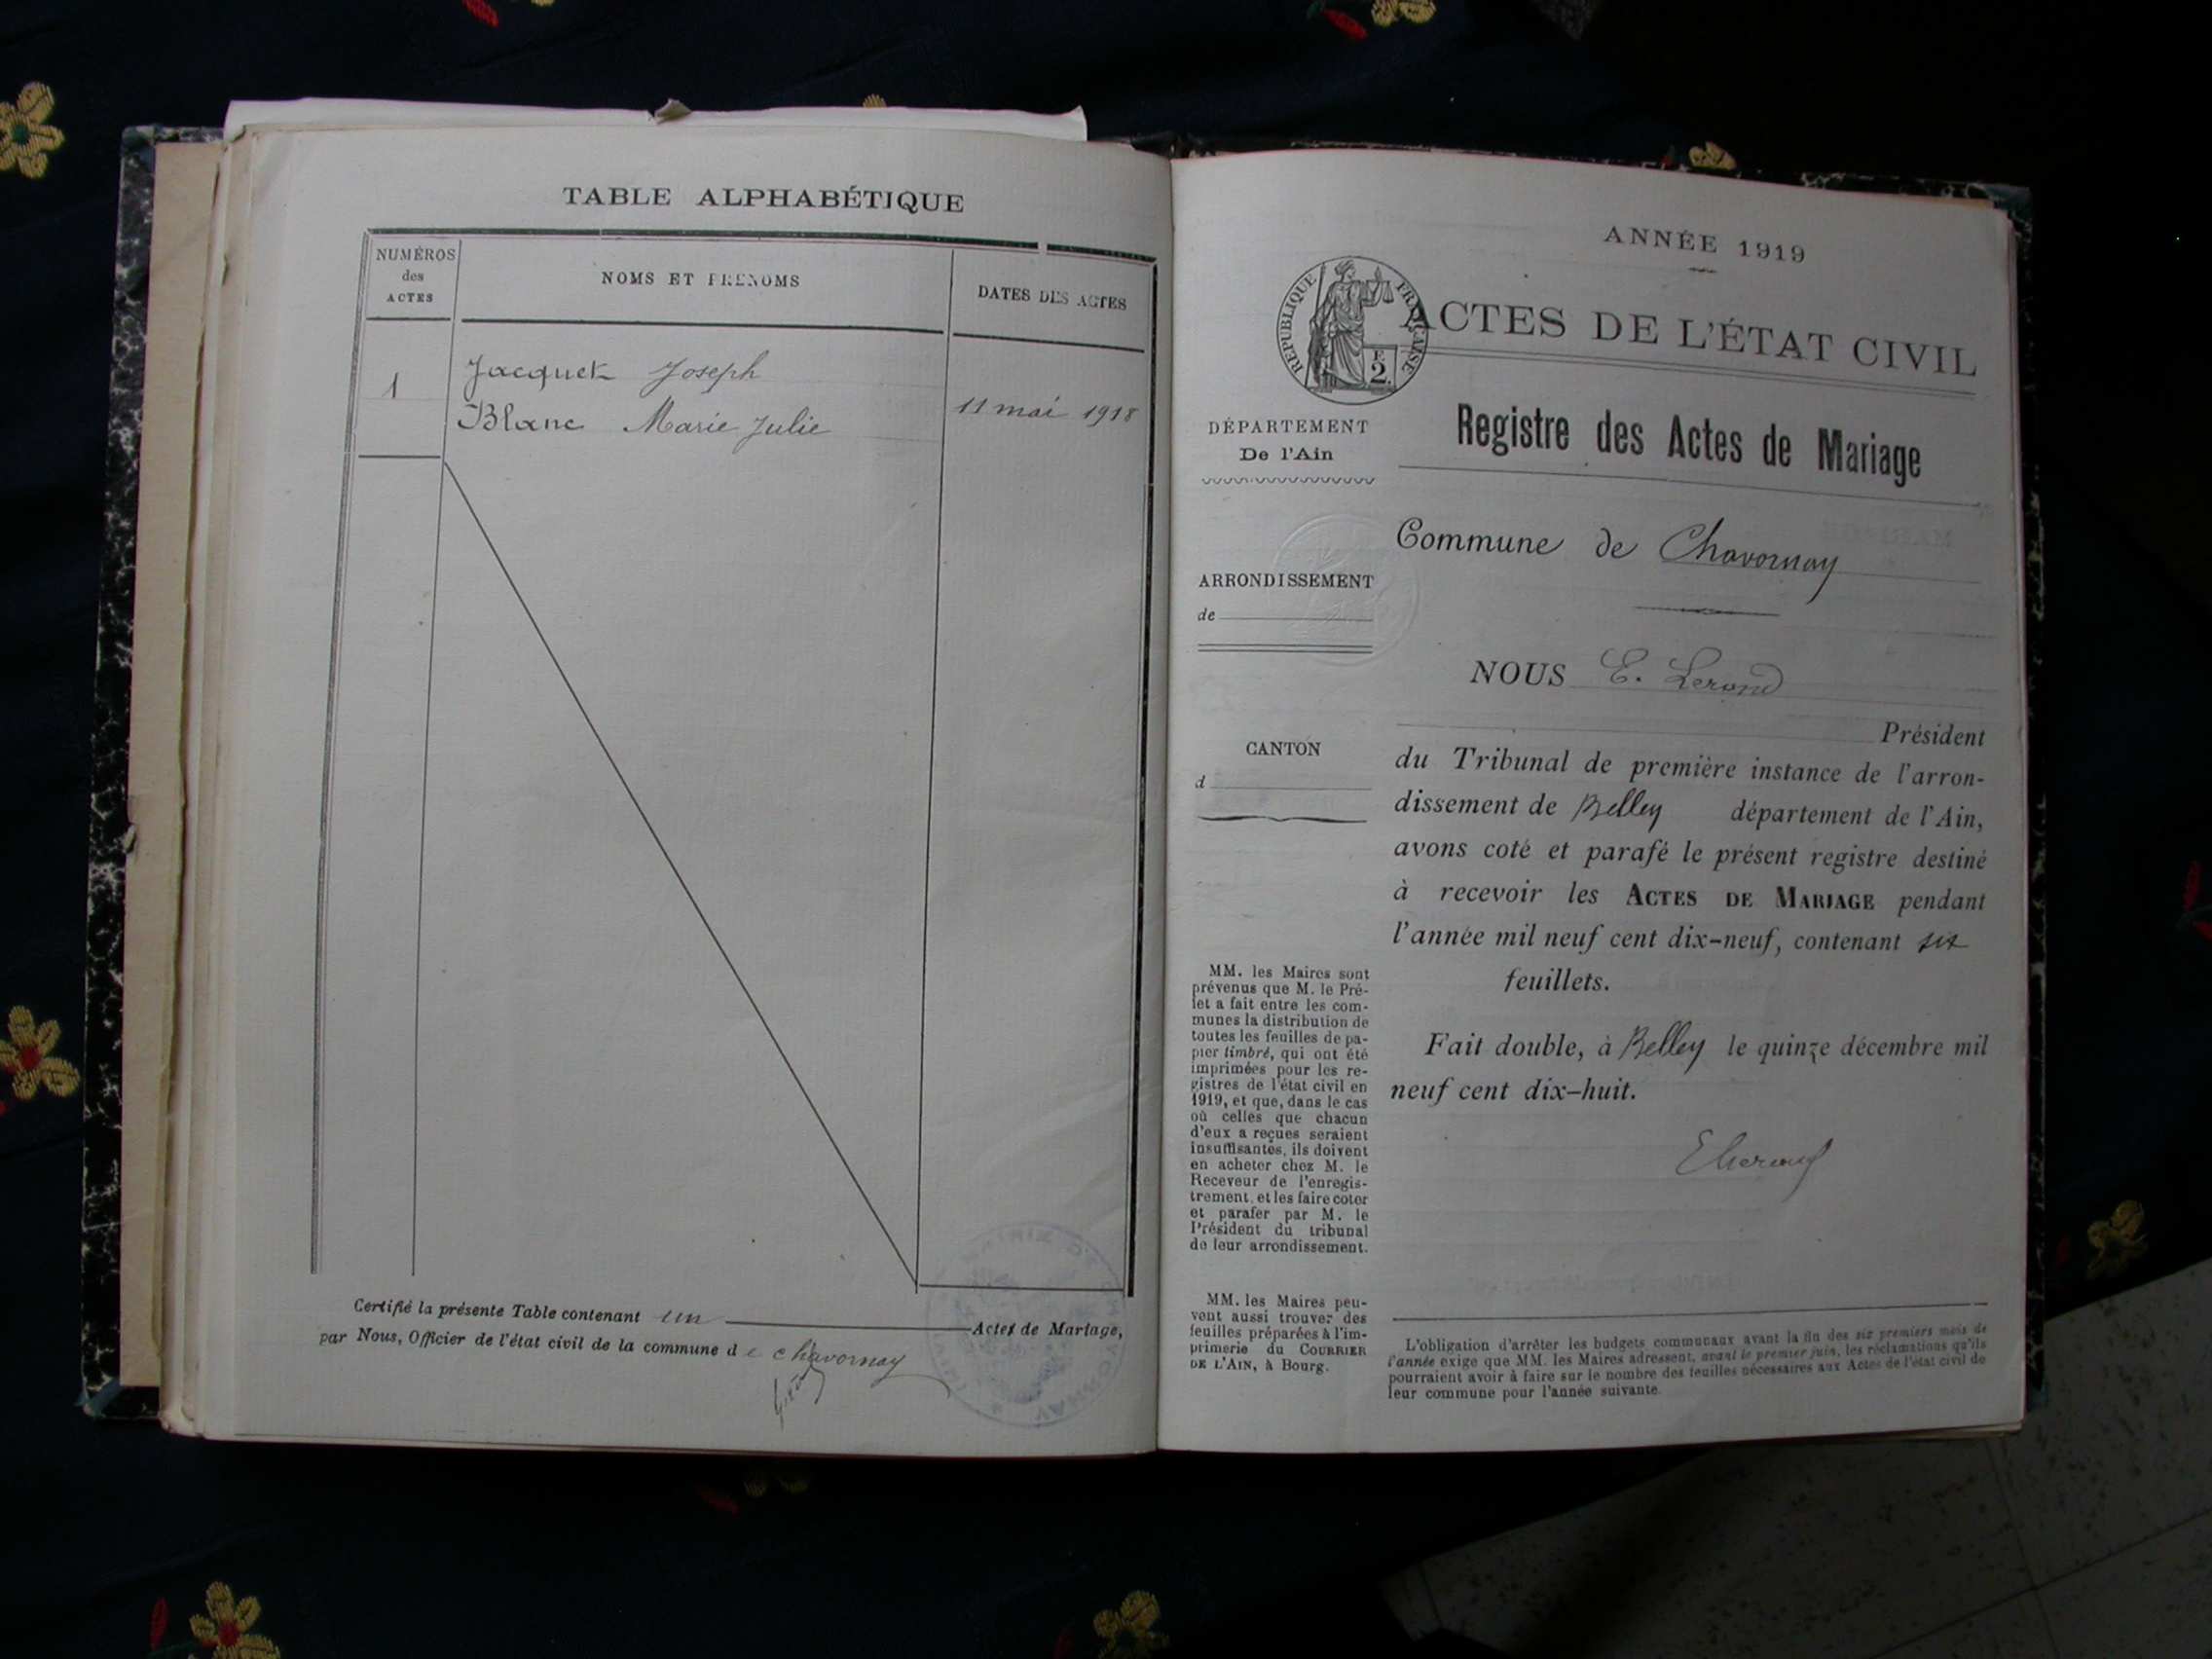 TABLE ALPHABÉTIQUE
NUMÉROS
des
ACTES
NOMS ET PRENOMS
DATES DES ACTES
1
Jacquet Joseph
Blanc Marie Julie
11 mai 1918
Certifié la présente Table contenant un Actes de Mariage,
par Nous, Officier de l'état civil de la commune de Chavornay
ANNÉE 1919
RÉPUBLIQUE FRANÇAISE
2
ACTES DE L'ÉTAT CIVIL
Registre des Actes de Mariage
DÉPARTEMENT
De l'Ain
Commune de Chavornay
ARRONDISSEMENT
de
NOUS E. Lerond
Président
CANTON
d
du Tribunal de première instance de l'arron-
dissement de Belley département de l'Ain,
avons coté et parafé le présent registre destiné
à recevoir les ACTES DE MARIAGE pendant
l'année mil neuf cent dix-neuf, contenant six
feuillets.
Fait double, à Belley le quinze décembre mil
neuf cent dix-huit.
MM. les Maires sont
prévenus que M. le Pré-
fet a fait entre les com-
munes la distribution de
toutes les feuilles de pa-
pier timbré, qui ont été
imprimées pour les re-
gistres de l'état civil en
1919, et que, dans le cas
où celles que chacun
d'eux a reçues seraient
insuffisantes, ils doivent
en acheter chez M. le
Receveur de l'enregis-
trement, et les faire coter
et parafer par M. le
Président du tribunal
de leur arrondissement.
MM. les Maires peu-
vent aussi trouver des
feuilles préparées à l'im-
primerie du COURRIER
DE L'AIN, à Bourg.
L'obligation d'arrêter les budgets communaux avant la fin des six premiers mois de
l'année exige que MM. les Maires adressent, avant le premier juin, les réclamations qu'ils
pourraient avoir à faire sur le nombre des feuilles nécessaires aux Actes de l'état civil de
leur commune pour l'année suivante.